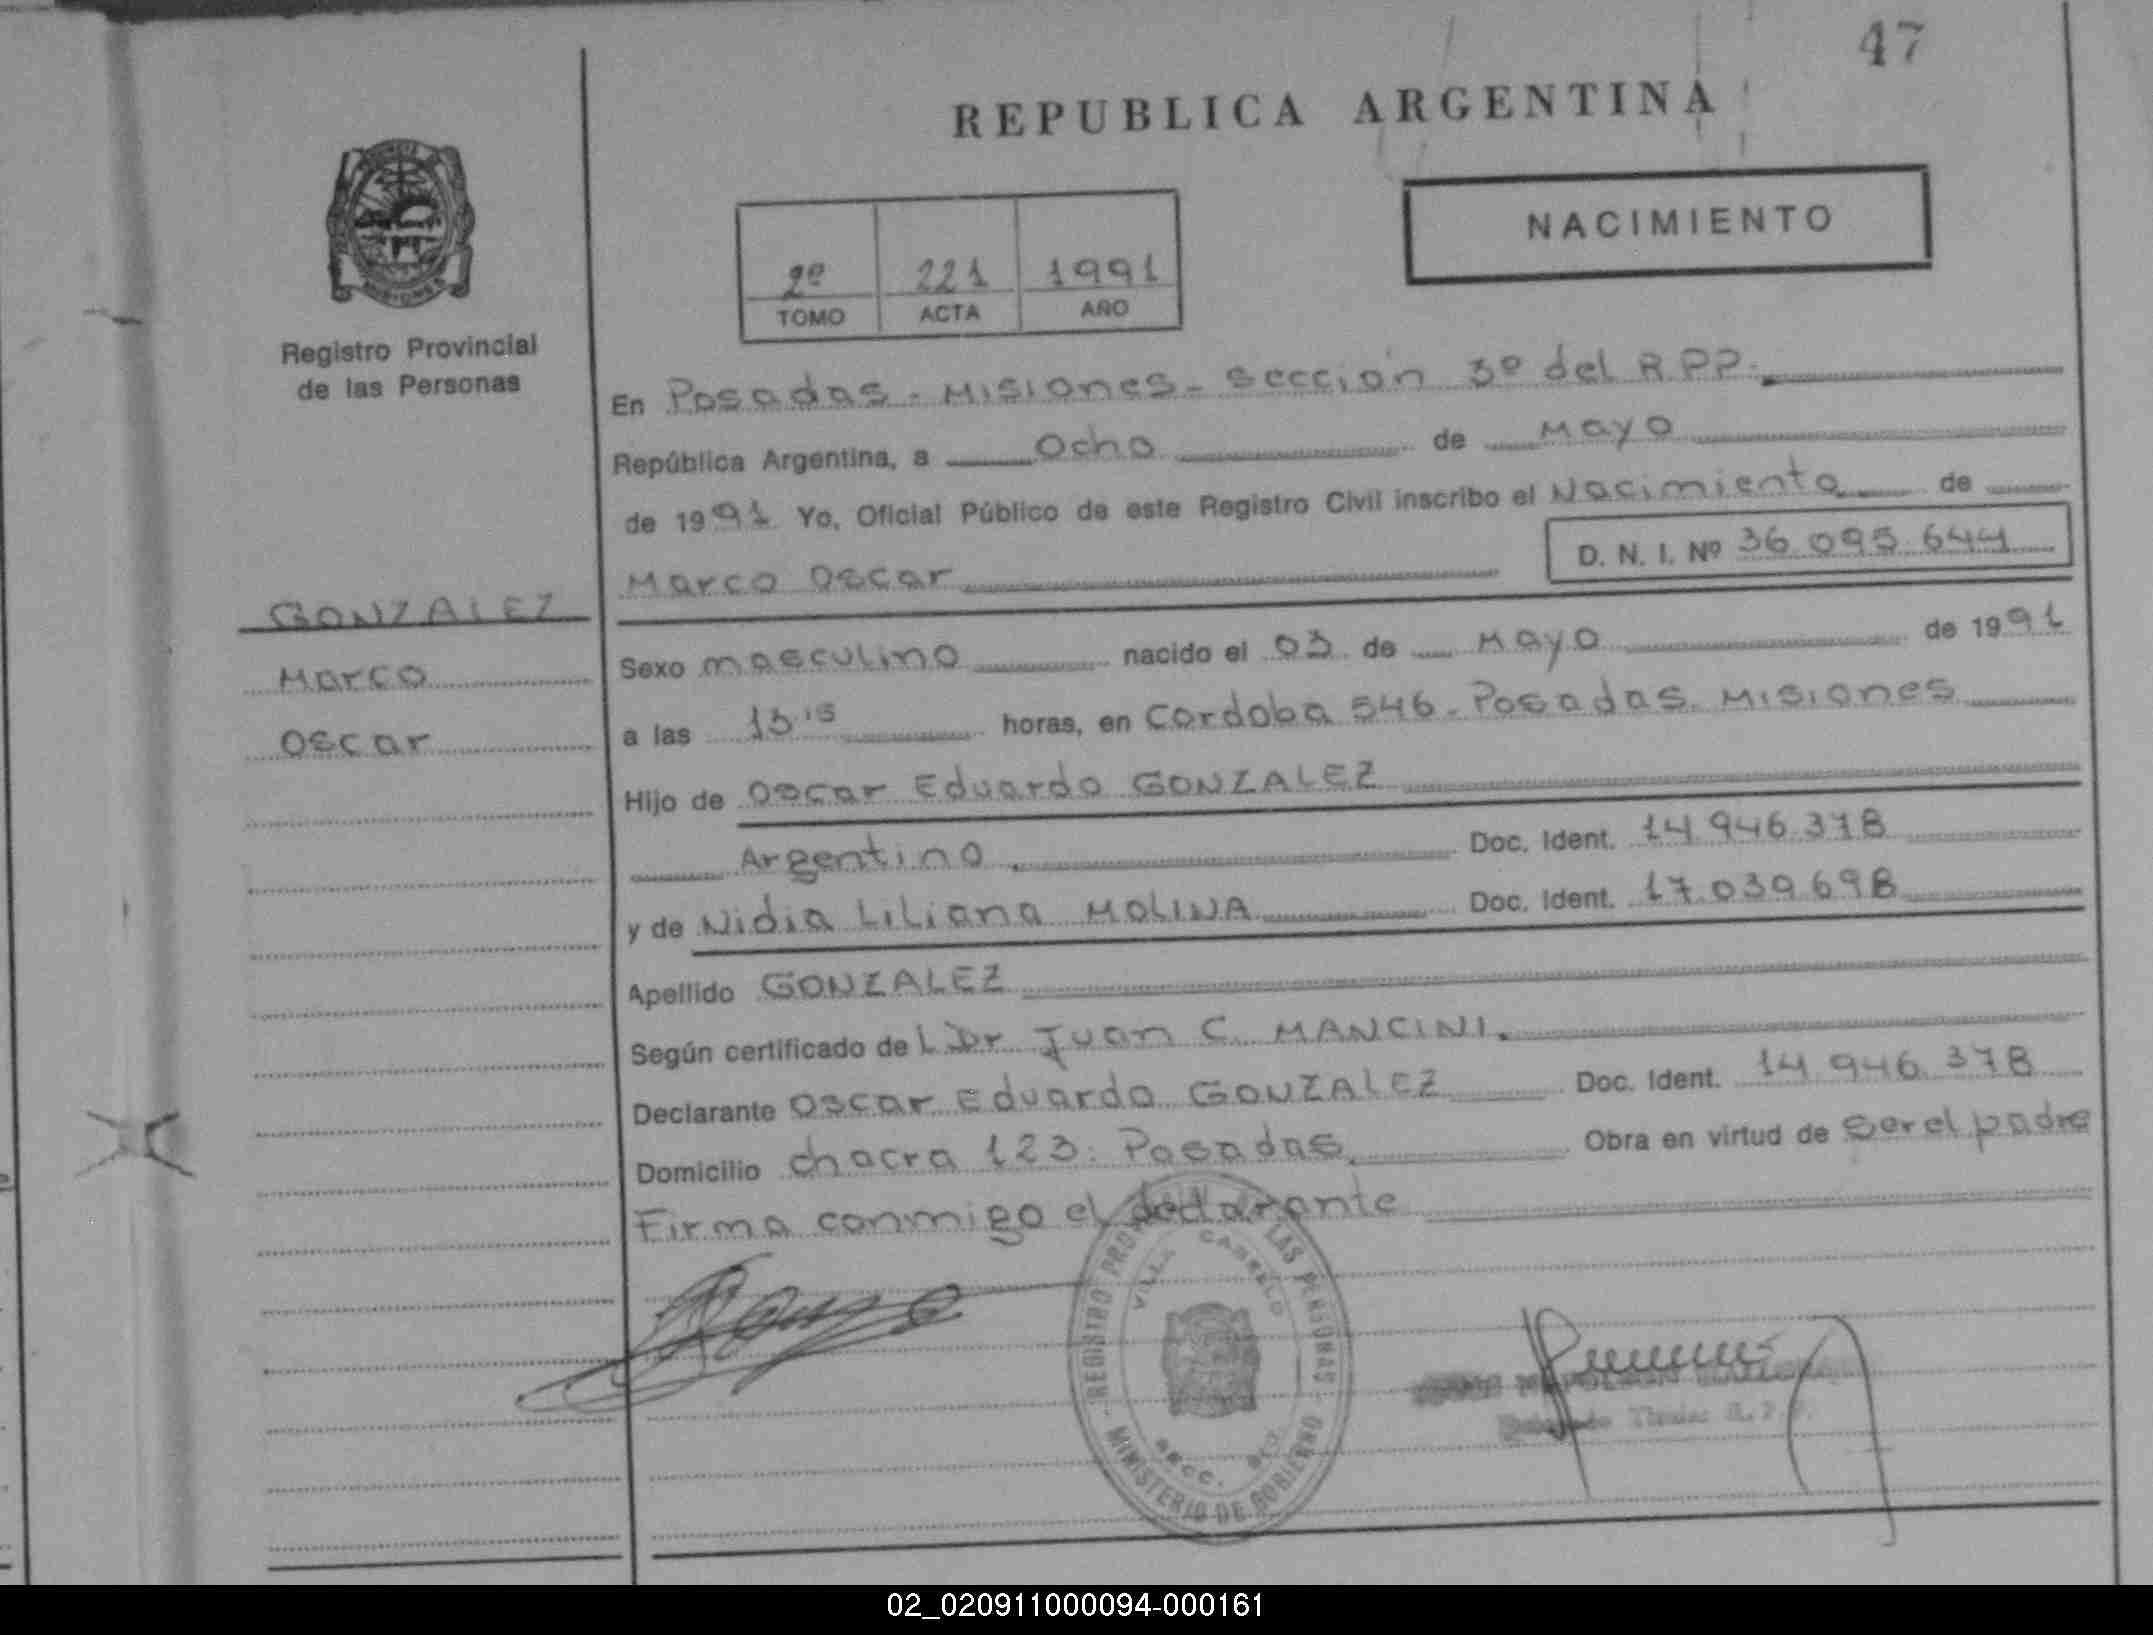 47
REPUBLICA ARGENTINA
NACIMIENTO
2º 221 1991
TOMO ACTA AÑO
Registro Provincial
de las Personas
En Posadas - Misiones - Sección 3º del R P P.
República Argentina, a Ocho de Mayo
de 1991 Yo, Oficial Público de este Registro Civil inscribo el Nacimiento de
Marco Oscar D. N. I. Nº 36.095.644
GONZALEZ
Marco
Oscar
Sexo masculino nacido el 03 de Mayo de 1991
a las 13 15 horas, en Cordoba 546 - Posadas. Misiones
Hijo de Oscar Eduardo GONZALEZ
Argentino Doc. Ident. 14.946.378
y de Nidia Liliana MOLINA Doc. Ident. 17.039.698
Apellido GONZALEZ
Según certificado de l Dr Juan C. MANCINI.
Declarante Oscar Eduardo GONZALEZ Doc. Ident. 14.946.378
Domicilio chacra 123. Posadas. Obra en virtud de ser el padre
Firma conmigo el declarante
REGISTRO LAS PERSONAS
VILLA CABELLO
MINISTERIO DE GOBIERNO
Titular R.P.P.
02_020911000094-000161